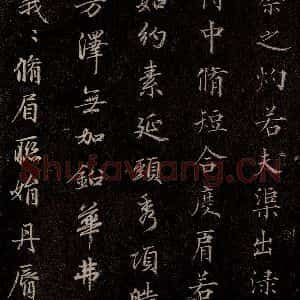 察之灼若夫渠出渌
得中脩短合度肩若
如約素延頸秀項皓
芳澤無加鉛華弗
峨〻脩眉聯娟丹脣
Shufawang.CN